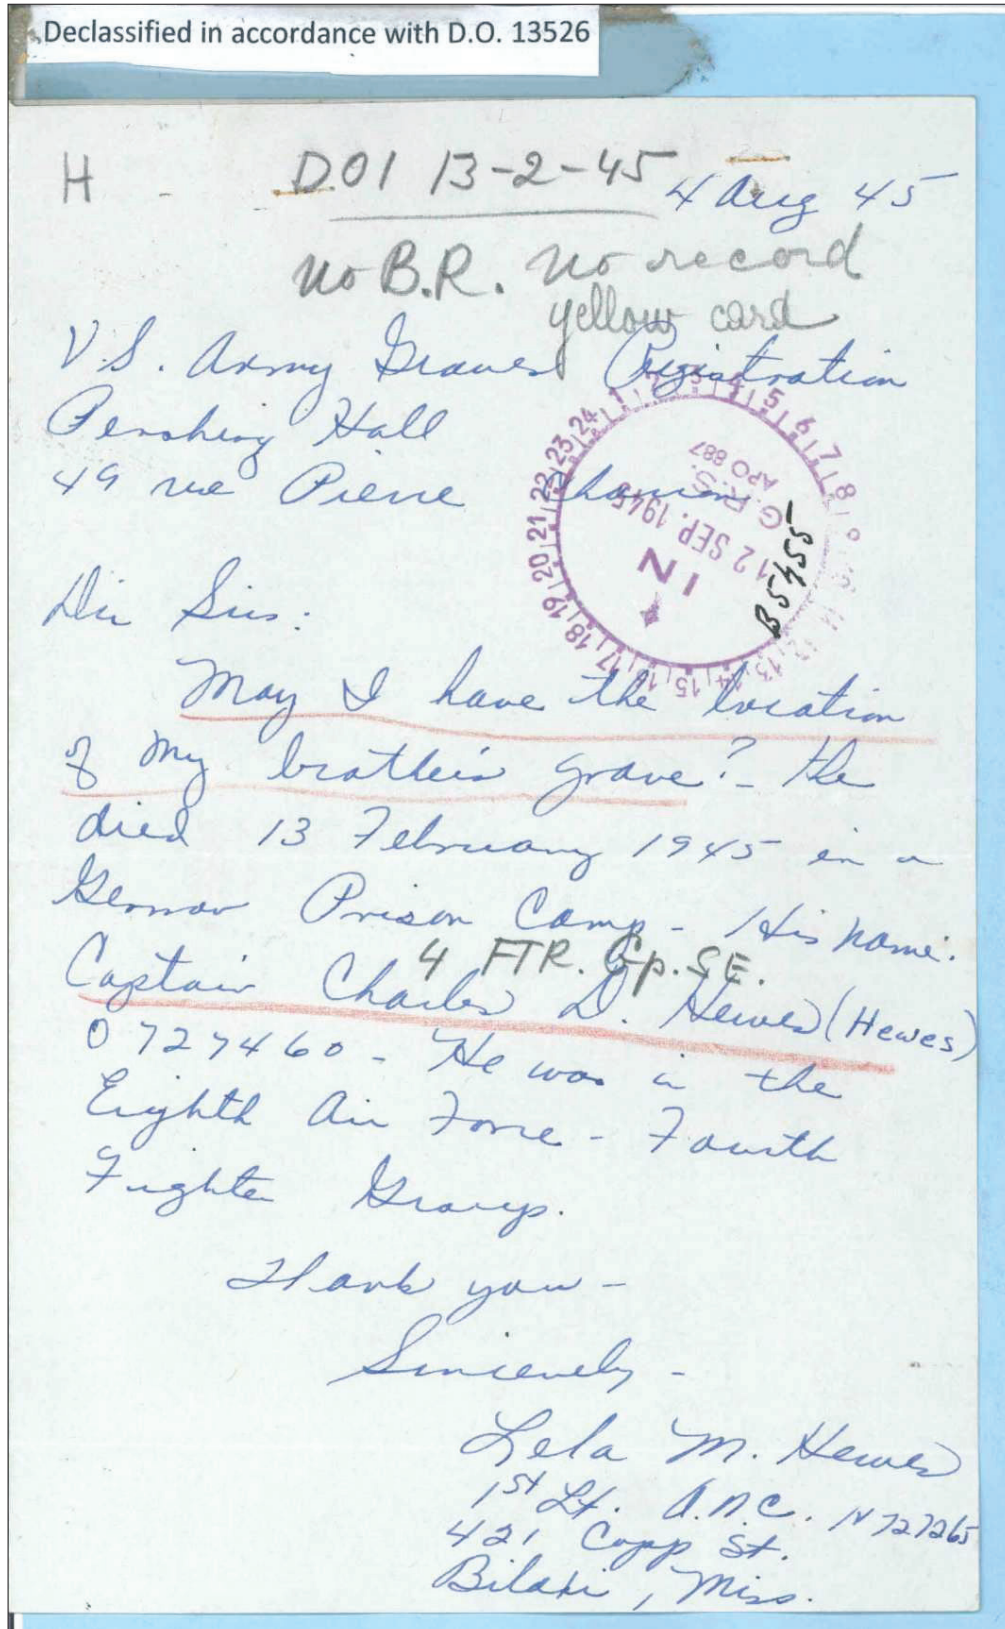 Declassified in accordance with D.O. 13526
H - DOI 13-2-45 4 Aug 45
No B.R. No record
yellow card
U.S. Army Graves Registration
Pershing Hall
49 rue Pierre
IN
12 SEP. 1945
G.R.S.
APO 887
B5455
Dear Sirs:
May I have the location
of my brother's grave? He
died 13 February 1945 in a
German Prison Camp - His name:
4 FTR. Gp. SE.
Captain Charles D. Hewes (Hewes)
O 727460 - He was in the
Eighth Air Force - Fourth
Fighter Group.
Thank you -
Sincerely -
Lela M. Hewes
1st Lt. A.N.C. N727265
421 Copp St.
Biloxi, Miss.